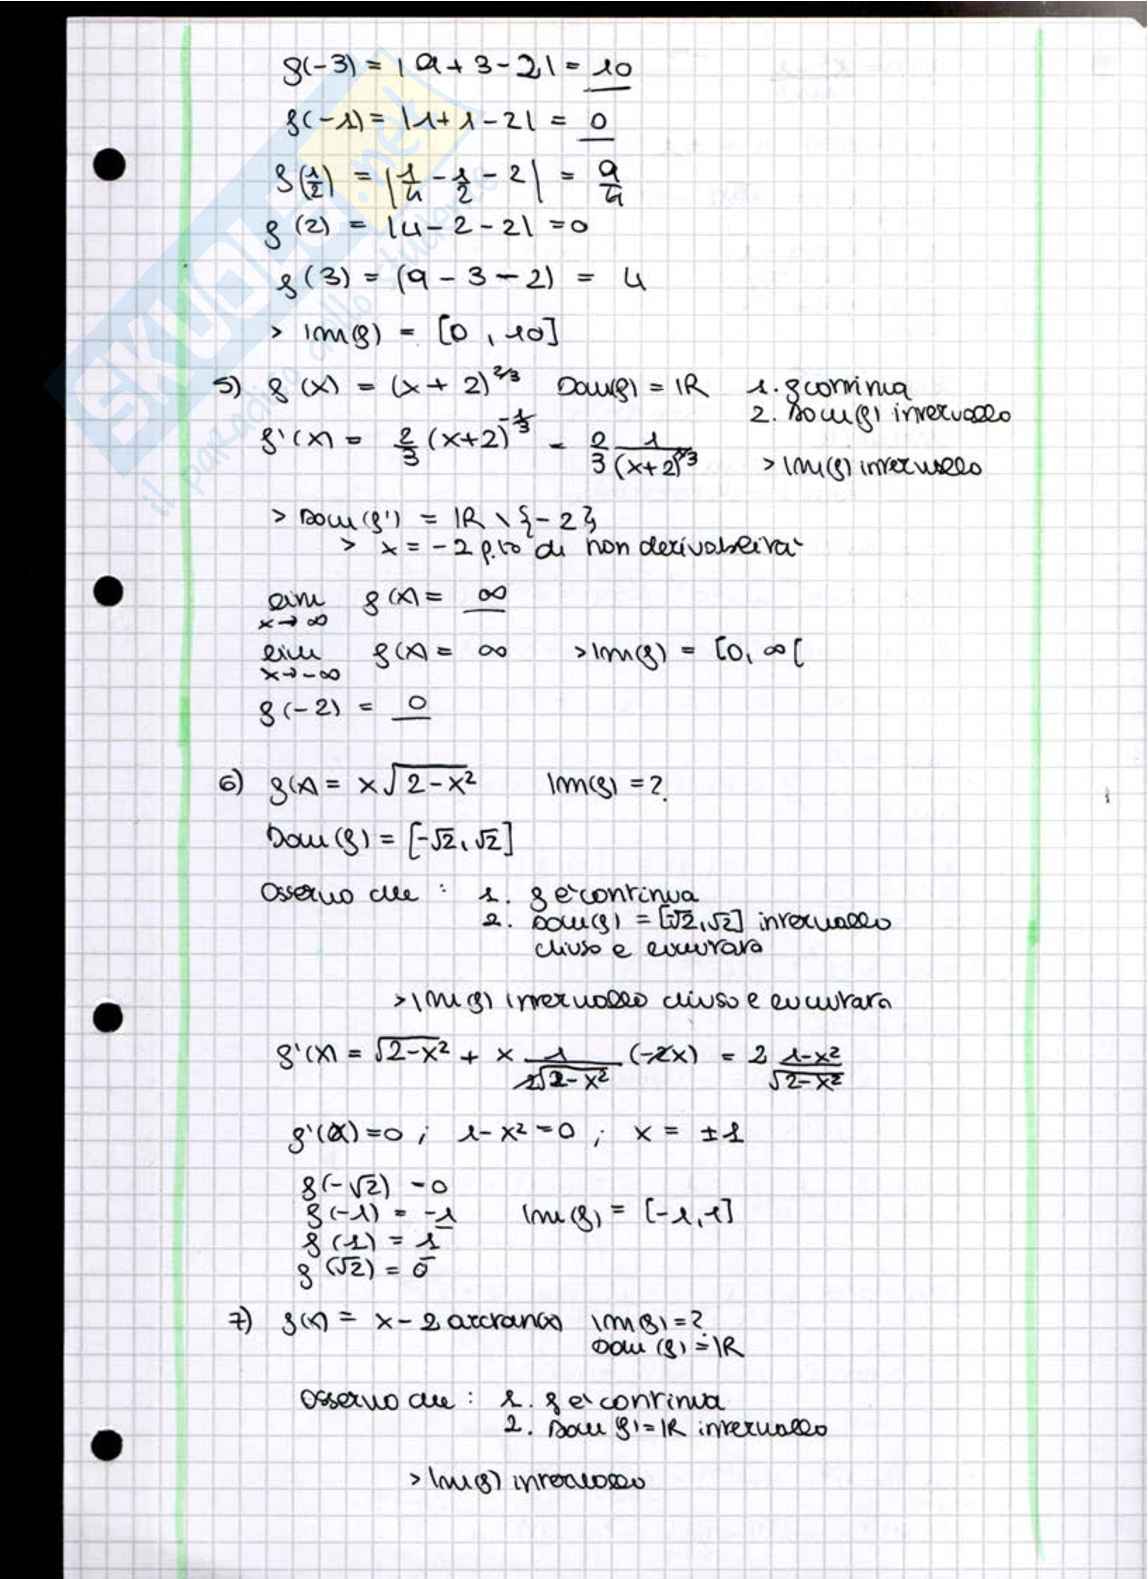 f(-3) = |9 + 3 - 2| = 10
f(-1) = |1 + 1 - 2| = 0
f(1/2) = |1/4 - 1/2 - 2| = 9/4
f(2) = |4 - 2 - 2| = 0
f(3) = (9 - 3 - 2) = 4
> Im(f) = [0, 10]
5) f(x) = (x + 2)^2/3 Dom(f) = ℝ 1. f continua
2. Dom(f) intervallo
f'(x) = 2/3 (x+2)^-1/3 = 2/3 1/(x+2)^1/3 > Im(f) intervallo
> Dom(f') = ℝ \ {-2}
> x = -2 p.to di non derivabilità
lim x→∞ f(x) = ∞
lim x→-∞ f(x) = ∞ > Im(f) = [0, ∞[
f(-2) = 0
6) f(x) = x√(2-x²) Im(f) = ?
Dom(f) = [-√2, √2]
Osservo che : 1. f è continua
2. Dom(f) = [-√2, √2] intervallo
chiuso e limitato
> Im(f) intervallo chiuso e limitato
f'(x) = √(2-x²) + x 1/(2√(2-x²)) (-2x) = 2 (1-x²)/√(2-x²)
f'(x) = 0 ; 1-x² = 0 ; x = ±1
f(-√2) = 0
f(-1) = -1 Im(f) = [-1, 1]
f(1) = 1
f(√2) = 0
7) f(x) = x - 2 arctan(x) Im(f) = ?
Dom(f) = ℝ
Osservo che : 1. f è continua
2. Dom f) = ℝ intervallo
> Im(f) intervallo
SKUOLA.net
il paradiso dello studente